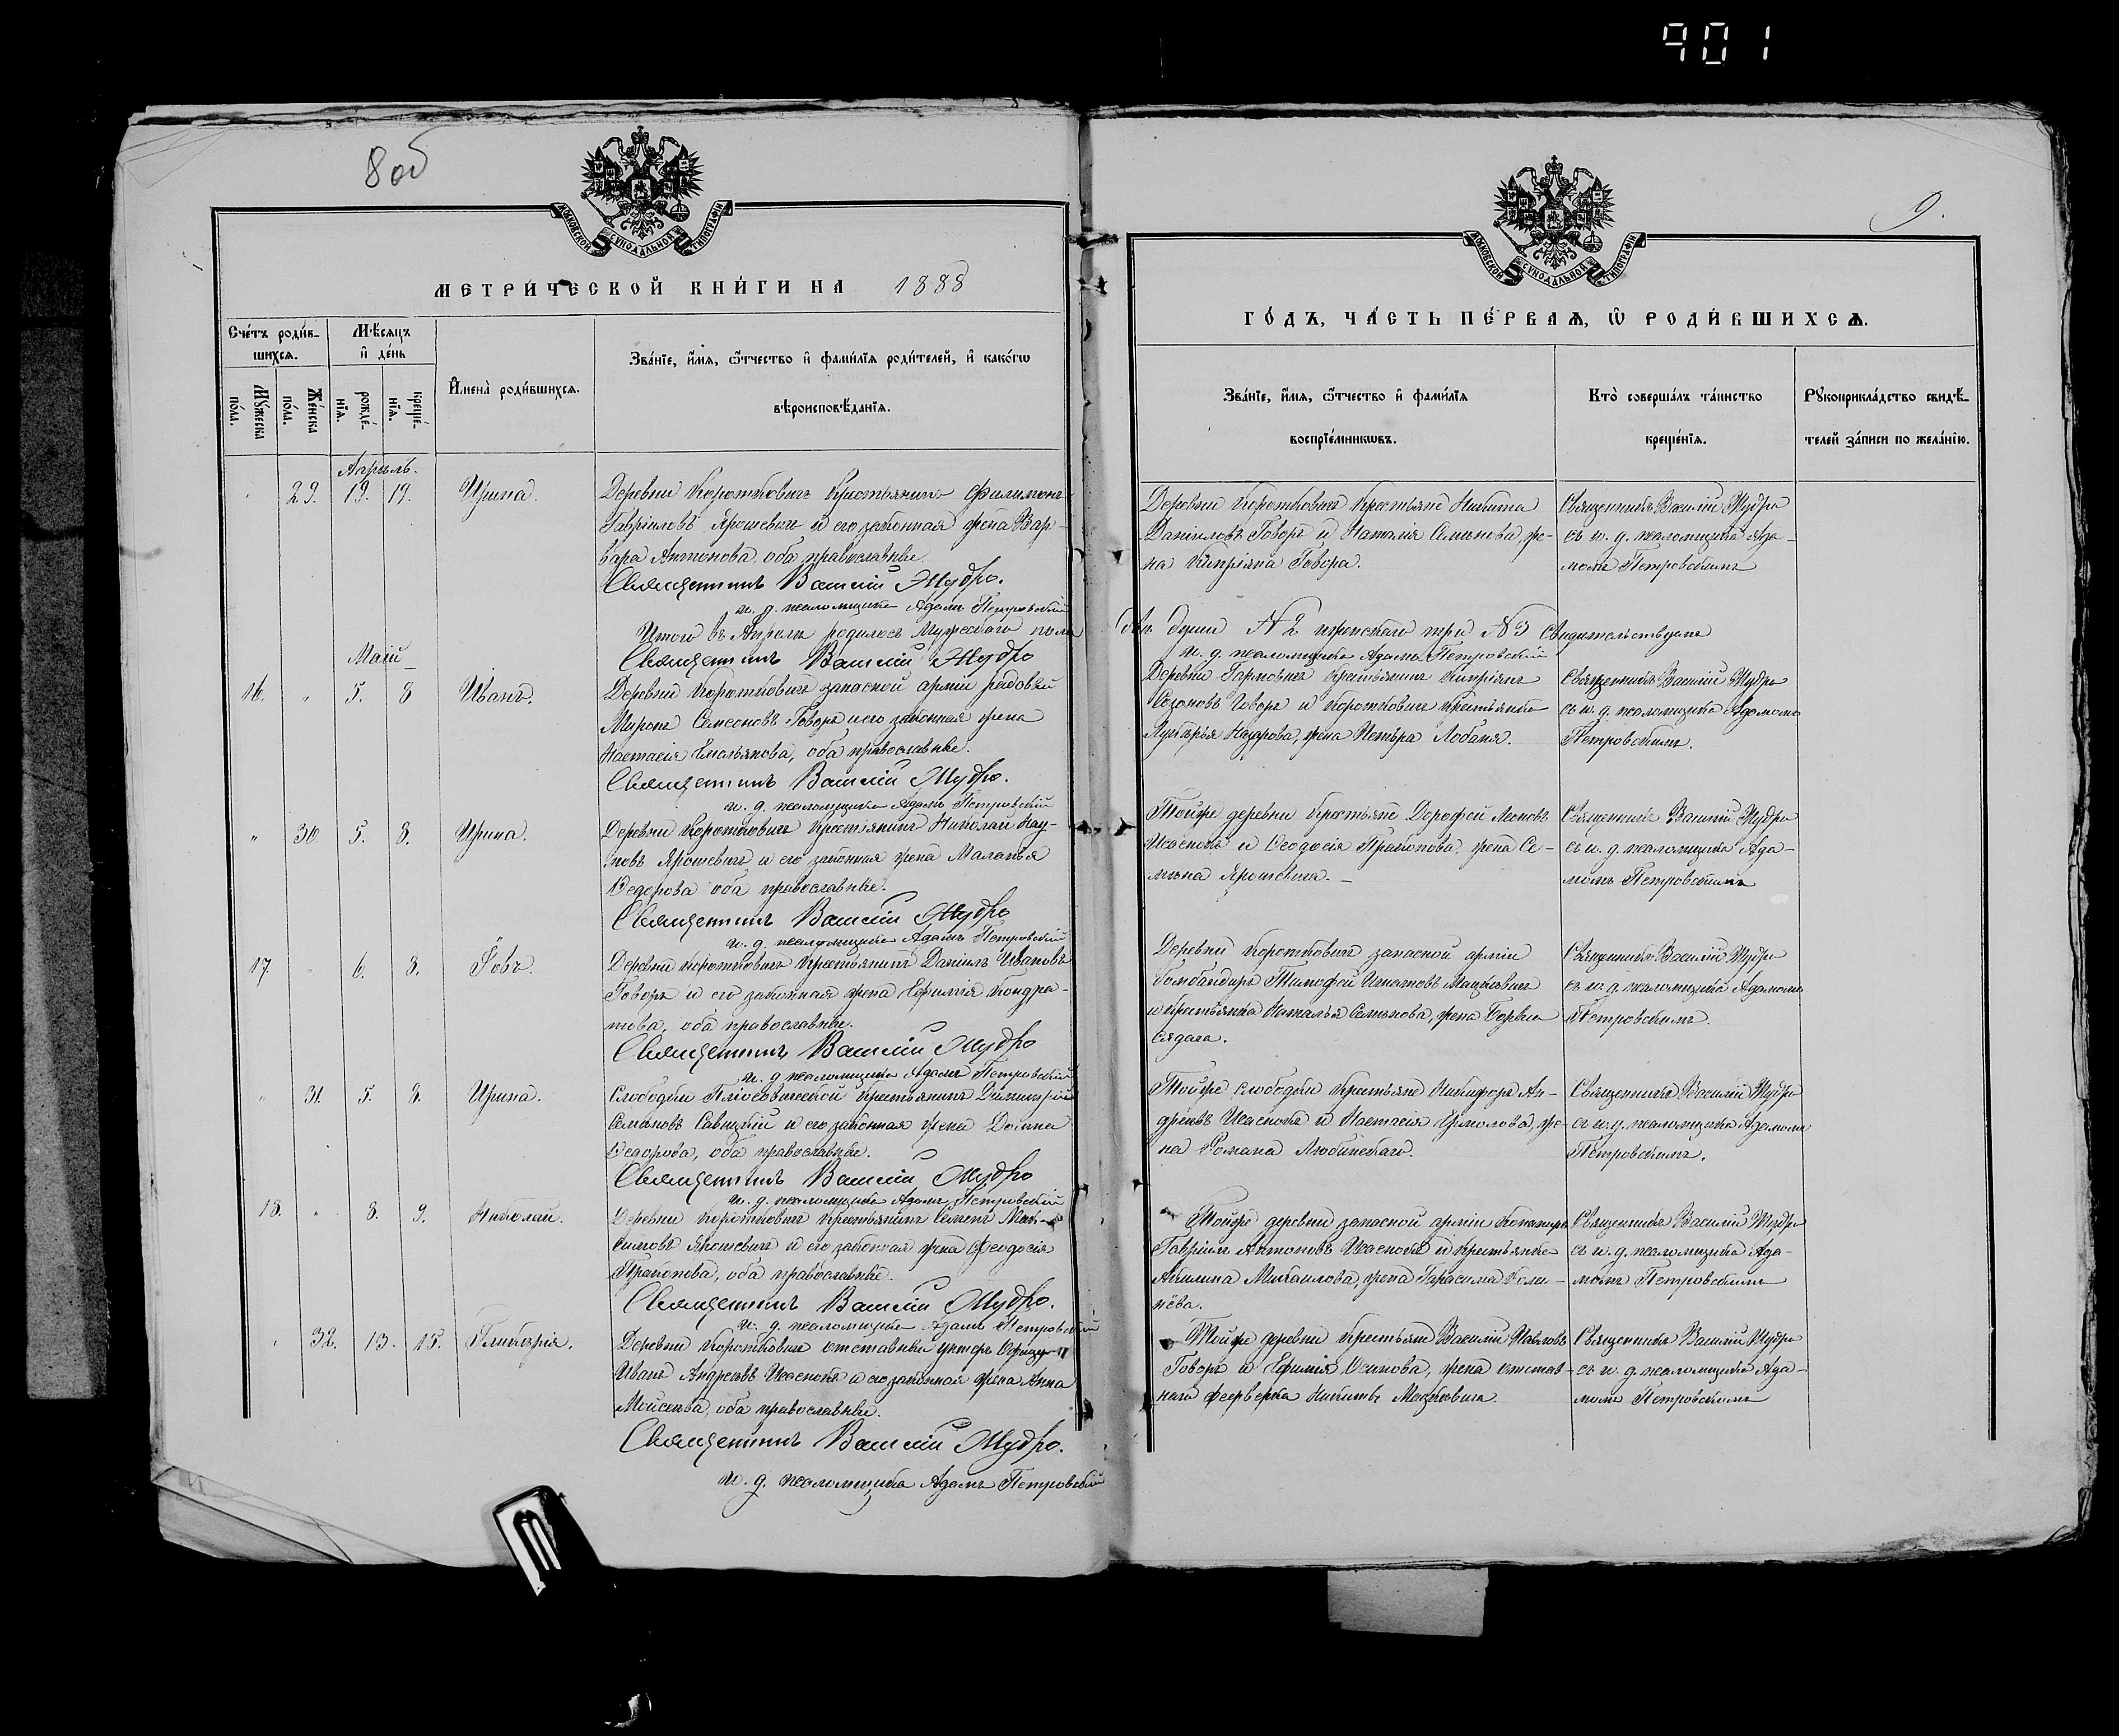 901
8 об
МОСКОВСКОЙ СѴНОДАЛЬНОЙ ТИПОГРАФІИ
МЕТРИ́ЧЕСКОЙ КНИ́ГИ НА 1888
Сче́тъ роди́в-
шихсѧ.
Мꙋ́жеска по́ла.
Же́нска по́ла.
Мѣ́сѧцъ
и҆ де́нь
рожде́-
нїѧ.
креще́-
нїѧ.
И҆мена̀ роди́вшихсѧ.
Зва́нїе, и҆́мѧ, ѻ҆́тчество и҆ фами́лїѧ роди́телей, и҆ како́гѡ
вѣроисповѣ́данїѧ.
Апрѣль.
29. 19. 19. Ирина.
Деревни Коротковичъ крестьянинъ Филимонъ
Гавріиловъ Ярошевичъ и его законная жена Вар-
вара Антонова, оба православные.
Священникъ Василій Мудро.
и. д. псаломщика Адамъ Петровскій
Итого въ Апрѣлѣ родилось мужескаго пола
Маій
16. " 5. 8 Иванъ.
Деревни Коротковичъ запасной арміи рядовый
Миронъ Самсоновъ Говоръ и его законная жена
Настасія Емельянова, оба православные.
Священникъ Василій Мудро.
и. д. псаломщика Адамъ Петровскій
" 30. 5. 8. Ирина.
Деревни Коротковичъ крестьянинъ Николай Нау-
мовъ Ярошевичъ и его законная жена Маланья
Ѳедорова оба православные.
Священникъ Василій Мудро
и. д. псаломщика Адамъ Петровскій
17. " 6. 8. Іовъ.
Деревни Коротковичъ крестьянинъ Даніилъ Ивановъ
Говоръ и его законная жена Ефимія Кондра-
това, оба православные.
Священникъ Василій Мудро
и. д. псаломщика Адамъ Петровскій
" 31. 5. 8. Ирина.
Слободки крестьянинъ Димитрій
Семеновъ Савицкій и его законная жена Домна
Ѳедорова, оба православные.
Священникъ Василій Мудро
и. д. псаломщика Адамъ Петровскій
18. " 8. 9. Николай.
Деревни Коротковичъ крестьянинъ Семенъ Мак-
симовъ Ярошевичъ и его законная жена Ѳеодосія
Прокопова, оба православные.
Священникъ Василій Мудро.
и. д. псаломщика Адамъ Петровскій
" 32. 13. 15. Гликерія.
Деревни Коротковичъ отставный унтеръ офицеръ
Иванъ Андреевъ Исаенокъ и его законная жена Анна
Моисеева, оба православные.
Священникъ Василій Мудро.
и. д. псаломщика Адамъ Петровскій
9.
МОСКОВСКОЙ СѴНОДАЛЬНОЙ ТИПОГРАФІИ
ГО́ДЪ, ЧА́СТЬ ПЕ́РВАѦ, Ѡ҆ РОДИ́ВШИХСѦ.
Зва́нїе, и҆́мѧ, ѻ҆́тчество и҆ фами́лїѧ
воспрїе́мникѡвъ.
Кто̀ соверша́лъ та́инство
креще́нїѧ.
Рꙋкоприкла́дство свидѣ́-
телей за́писи по жела́нїю.
Деревни Коротковичъ крестьяне Никита
Даніиловъ Говоръ и Наталія Семенова, же-
на Кипріяна Говора.
Священникъ Василій Мудро
съ и. д. псаломщика Ада-
момъ Петровскимъ
двѣ души № 2 женскаго три № 3 свидѣтельствуемъ
и. д. псаломщика Адамъ Петровскій
Деревни крестьянинъ Кипріянъ
Созоновъ Говоръ и Коротковичъ крестьянка
Лукерья Назарова, жена Петра Лобаня.
Священникъ Василій Мудро
съ и. д. псаломщика Адамомъ
Петровскимъ.
Тойже деревни крестьяне Дорофей Леоновъ
Исаенокъ и Ѳеодосія Прокопова, жена Се-
мена Ярошевича.
Священникъ Василій Мудро
съ и. д. псаломщика Ада-
момъ Петровскимъ
Деревни Коротковичъ запасной арміи
бомбандиръ Тимофей Игнатовъ Мацкевичъ
и крестьянка Наталья Семенова, жена
Священникъ Василій Мудро
съ и. д. псаломщика Адамомъ
Петровскимъ.
Тойже слободки крестьяне Никифоръ Ан-
дреевъ Исаенокъ и Настасія Ермолова, же-
на Романа Любинскаго.
Священникъ Василій Мудро
съ и. д. псаломщика Адамомъ
Петровскимъ.
Тойже деревни запасной арміи
Гавріилъ Антоновъ Исаенокъ и крестьянка
Акилина Михаилова, жена Герасима
Священникъ Василій Мудро
съ и. д. псаломщика Ада-
момъ Петровскимъ
Тойже деревни крестьяне Василій Павловъ
Говоръ и Ефимія Осипова, жена отстав-
наго феерверка Никиты Мацкевича.
Священникъ Василій Мудро
съ и. д. псаломщика Ада-
момъ Петровскимъ